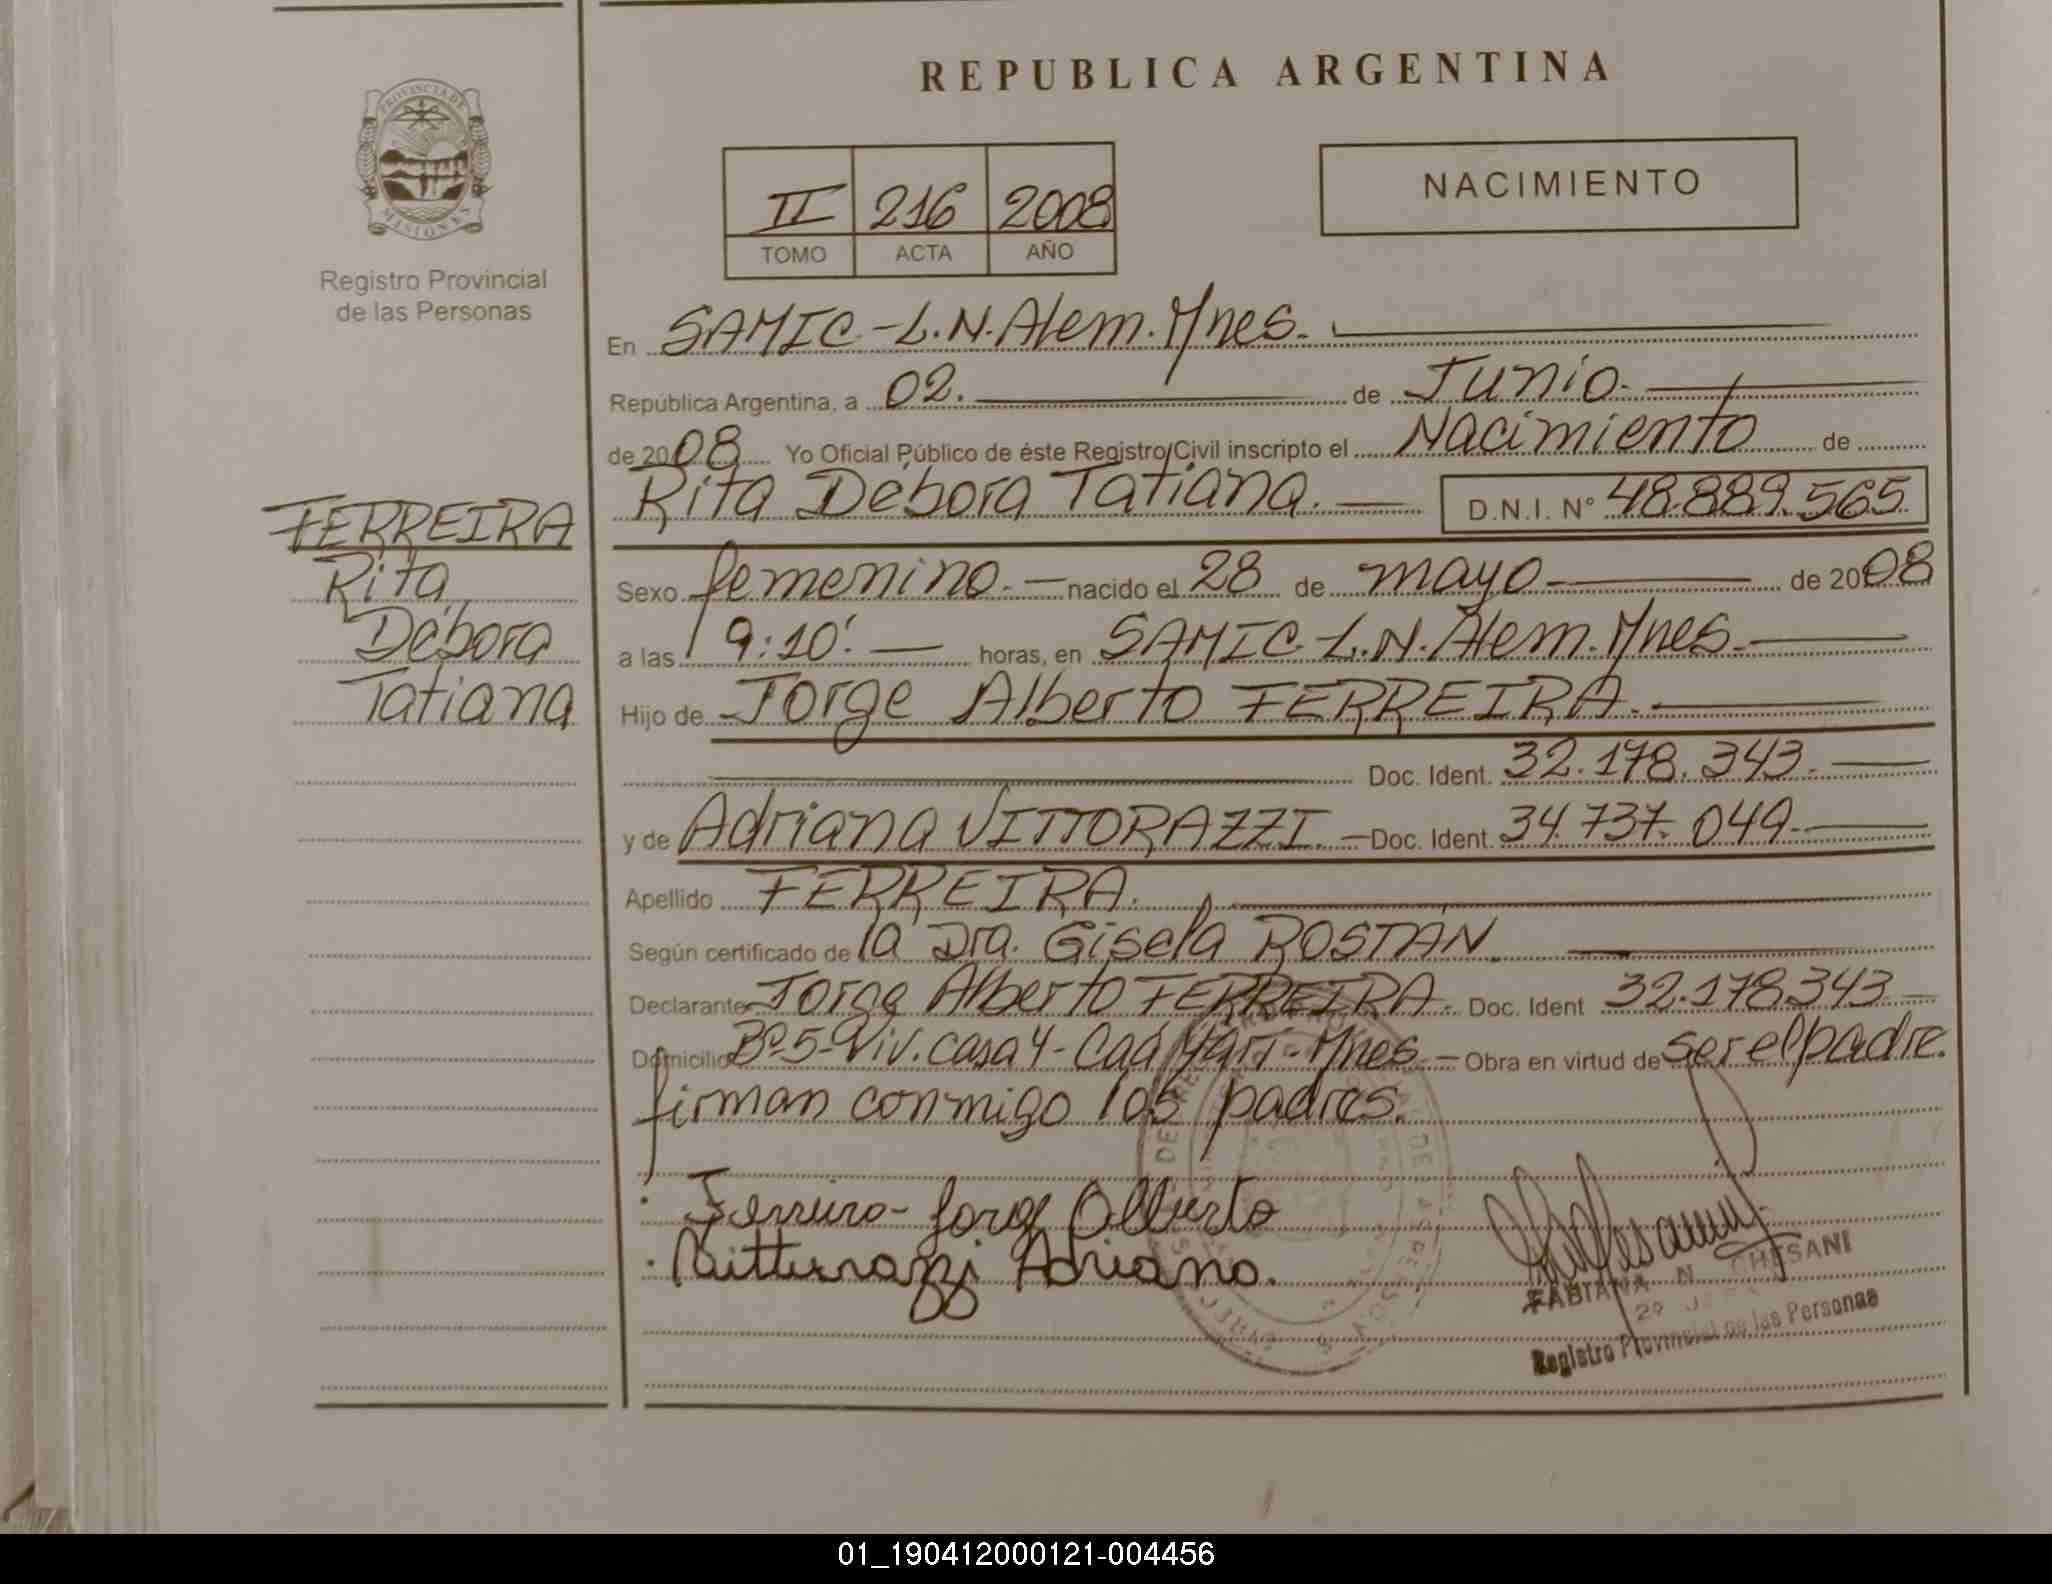 REPUBLICA ARGENTINA
PROVINCIA DE
MISIONES
Registro Provincial
de las Personas
II 216 2008
TOMO ACTA AÑO
NACIMIENTO
En SAMIC.-L.N.Alem.Mnes.
República Argentina, a 02. de Junio.
de 2008 Yo Oficial Público de éste Registro Civil inscripto el Nacimiento de
Rita Débora Tatiana. D.N.I. Nº 48.889.565
FERREIRA
Rita
Débora
Tatiana
Sexo femenino.- nacido el 28 de mayo de 2008
a las 9:10'. horas, en SAMIC-L.N.Alem.Mnes.
Hijo de Jorge Alberto FERREIRA.
Doc. Ident. 32.178.343.
y de Adriana VITTORAZZI. Doc. Ident. 34.737.049.
Apellido FERREIRA.
Según certificado de la Dra. Gisela ROSTÁN.
Declarante Jorge Alberto FERREIRA. Doc. Ident 32.178.343
Domicilio Bº.5-Viv.casa 4-Caá Yarí-Mnes. Obra en virtud de ser el padre.
firman conmigo los padres.
Ferreira-Jorge Alberto
Vitturazzi Adriana.
FABIANA N. CHESANI
Registro Provincial de las Personas
01_190412000121-004456